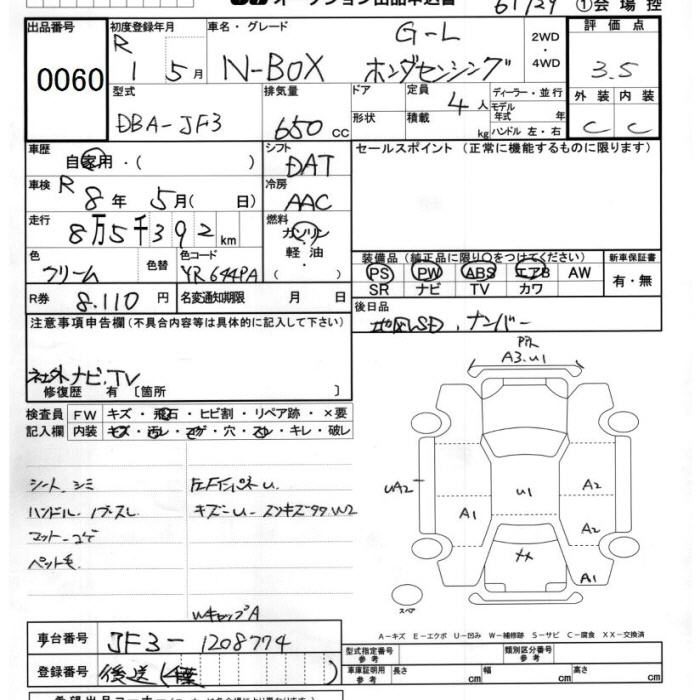 オークション出品申込書
61129 ①会場控
出品番号 0060
初度登録年月 R 1 5月
車名・グレード N-BOX G-L ホンダセンシング
2WD・4WD
評価点 3.5
型式 DBA-JF3
排気量 650 cc
ドア 形状
定員 4人
積載 kg
ディーラー・並行
モデル年式 年
ハンドル 左・右
外装 C 内装 C
車歴 自家用・( )
シフト DAT
セールスポイント(正常に機能するものに限ります)
車検 R 8年 5月( 日)
冷房 AAC
走行 8万5千392km
燃料 ガソリン 軽油・( )
色 クリーム 色替
色コード YR644PA
装備品(純正品に限り○をつけてください) 新車保証書
PS PW ABS エアB AW 有・無
SR ナビ TV カワ
R券 8.110円 名変通知期限 月 日
後日品
注意事項申告欄(不具合内容等は具体的に記入して下さい)
社外ナビ.TV
修復歴 有 〔箇所 〕
検査員記入欄
FW キズ・飛石・ヒビ割・リペア跡・×要
内装 キズ・汚レ・コゲ・穴・スレ・キレ・破レ
シート、シミ
ハンドル
マット-コゲ
ペット毛
A3.U1
UA2
A1
U1
A2
A2
A1
XX
スペア
WキャップA
A-キズ E-エクボ U-凹み W-補修跡 S-サビ C-腐食 XX-交換済
車台番号 JF3-1208774
登録番号 後送(千葉 )
型式指定番号 参考
類別区分番号 参考
車庫証明用 参考 長さ cm 幅 cm 高さ cm